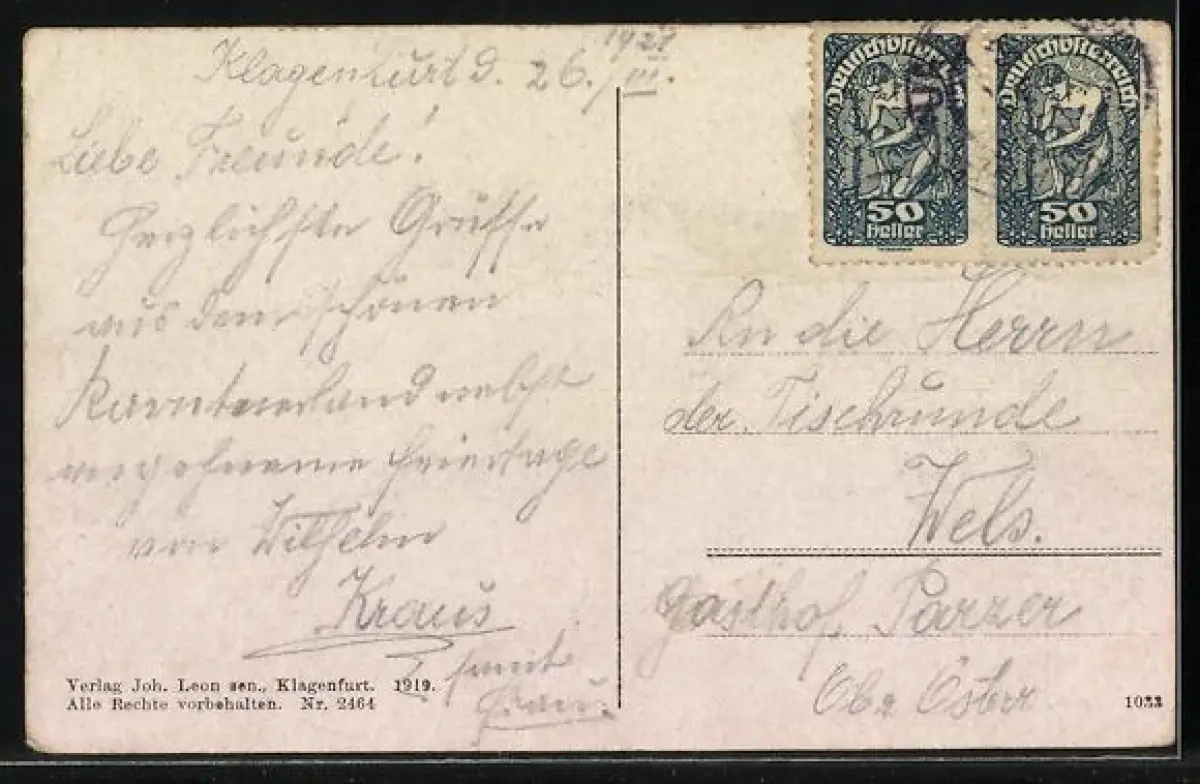 Klagenfurt d. 26./III. 1921
Liebe Freunde!
Herzlichste Grüsse
aus dem schönen
Kärntnerland nebst
angenehme Feiertage
von Wilhelm
Kraus
samt
Frau.
Verlag Joh. Leon sen., Klagenfurt. 1919.
Alle Rechte vorbehalten. Nr. 2464
Deutschösterreich
50
Heller
Deutschösterreich
50
Heller
An die Herrn
der Tischrunde
Wels.
Gasthof Parzer
Ob. Öster
1033